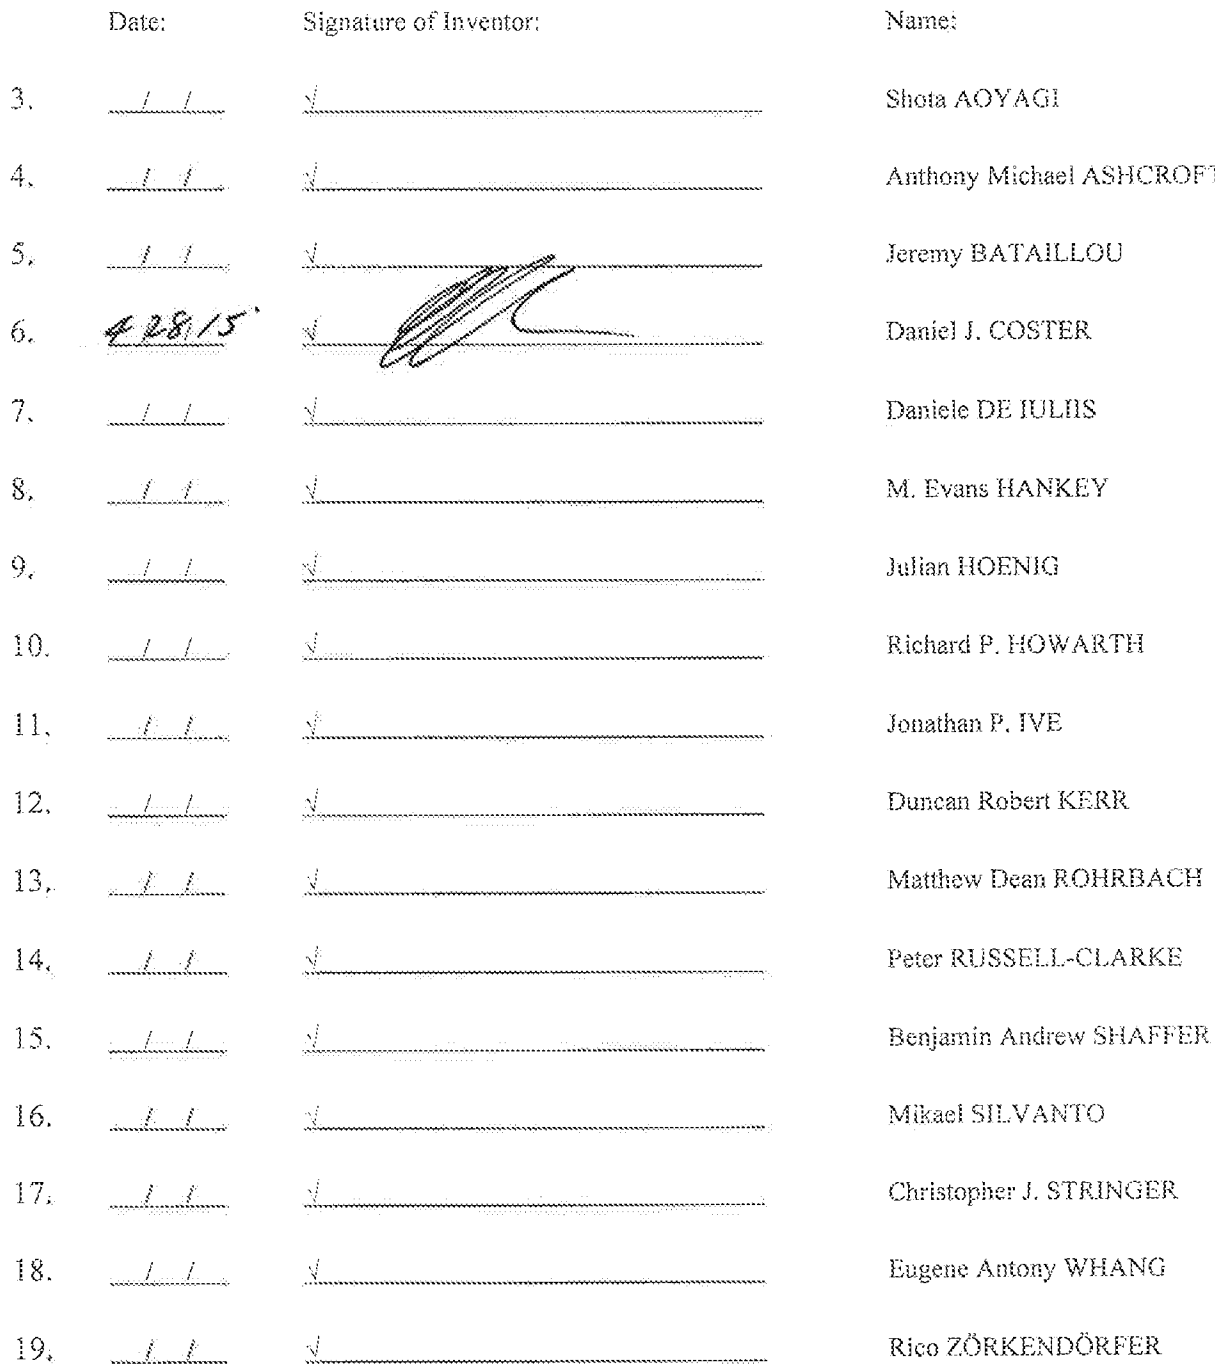 Date: Signature of Inventor: Name:
3. / / √ Shota AOYAGI
4. / / √ Anthony Michael ASHCROFT
5. / / √ Jeremy BATAILLOU
6. 4/28/15 √ Daniel J. COSTER
7. / / √ Daniele DE IULIIS
8. / / √ M. Evans HANKEY
9. / / √ Julian HOENIG
10. / / √ Richard P. HOWARTH
11. / / √ Jonathan P. IVE
12. / / √ Duncan Robert KERR
13. / / √ Matthew Dean ROHRBACH
14. / / √ Peter RUSSELL-CLARKE
15. / / √ Benjamin Andrew SHAFFER
16. / / √ Mikael SILVANTO
17. / / √ Christopher J. STRINGER
18. / / √ Eugene Antony WHANG
19. / / √ Rico ZÖRKENDÖRFER